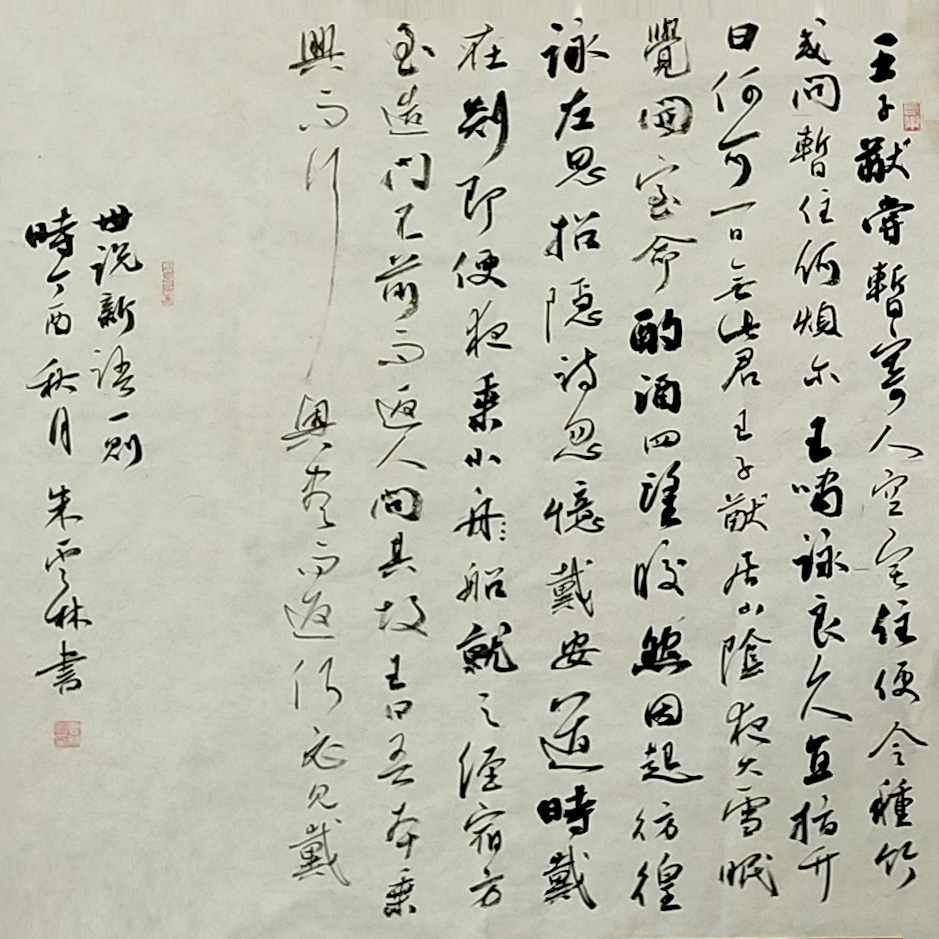 王子猷嘗暫寄人空宅住便令種竹
或問暫住何煩尔王嘯詠良久直指竹
曰何可一日無此君王子猷居山陰夜大雪眠
覺開室命酌酒四望皎然因起彷徨
詠左思招隱詩忽憶戴安道時戴
在剡即便夜乘小舟船就之經宿方
至造門不前而返人問其故王曰吾本乘
興而行興盡而返何必見戴
世說新語一則
時丁酉秋月朱雲林書